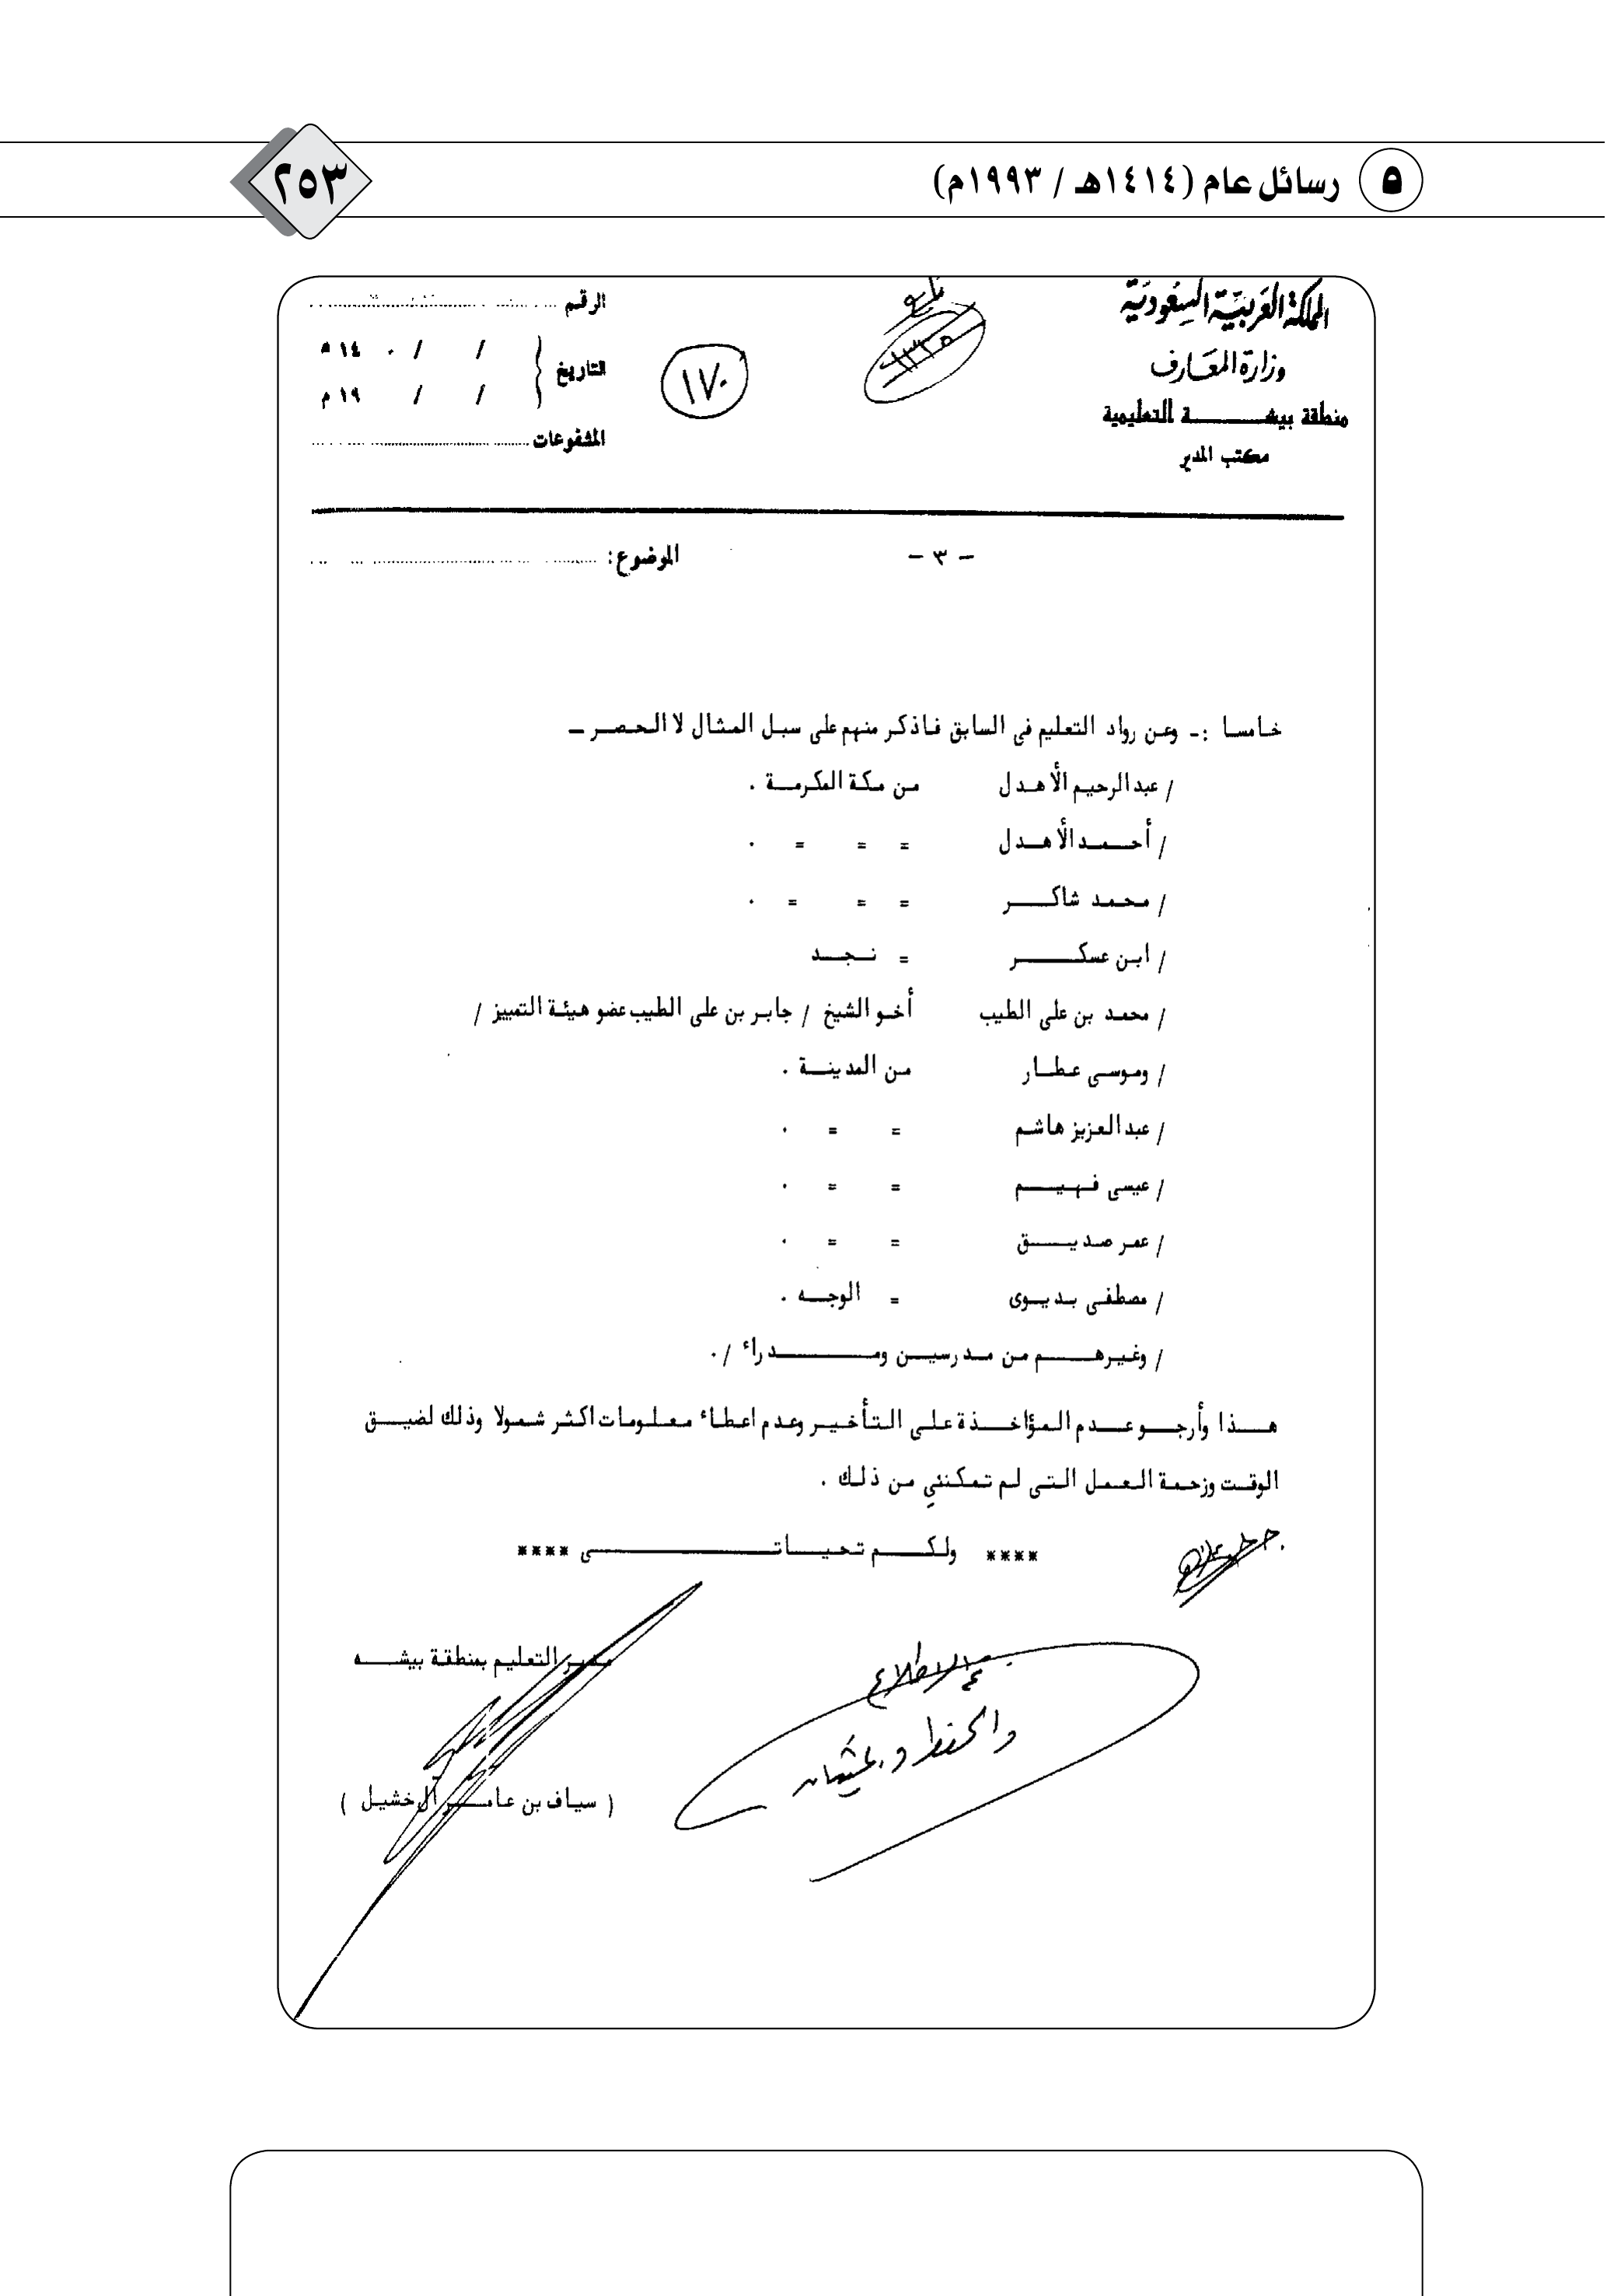 ٥ رسائل عام (١٤١٤هـ / ١٩٩٣م)
٢٥٣
المملكة العربية السعودية
وزارة المعارف
منطقة بيشـــــة التعليمية
مكتب المدير
١٧٠
الرقم
التاريخ
/ / ١٤٠ هـ
/ / ١٩ م
المشفوعات
- ٣ -
الموضوع:
خامسا :- وعن رواد التعليم فى السابق فاذكر منهم على سبل المثال لا الحصر -
/ عبدالرحيم الأهدل من مكة المكرمة .
/ أحمد الأهدل = = = .
/ محمد شاكر = = = .
/ ابن عسكر = نجد
/ محمد بن على الطيب أخو الشيخ / جابر بن على الطيب عضو هيئة التمييز /
/ وموسى عطار من المدينة .
/ عبدالعزيز هاشم = = .
/ عيسى فهيم = = .
/ عمر صديق = = .
/ مصطفى بديوى = الوجه .
/ وغيرهم من مدرسين ومدراء / .
هذا وأرجو عدم المؤاخذة على التأخير وعدم اعطاء معلومات اكثر شمولا وذلك لضيق
الوقت وزحمة العمل التى لم تمكننى من ذلك .
**** ولكم تحياتى ****
مدير التعليم بمنطقة بيشه
( سياف بن عامر آل خشيل )
تم الاطلاع